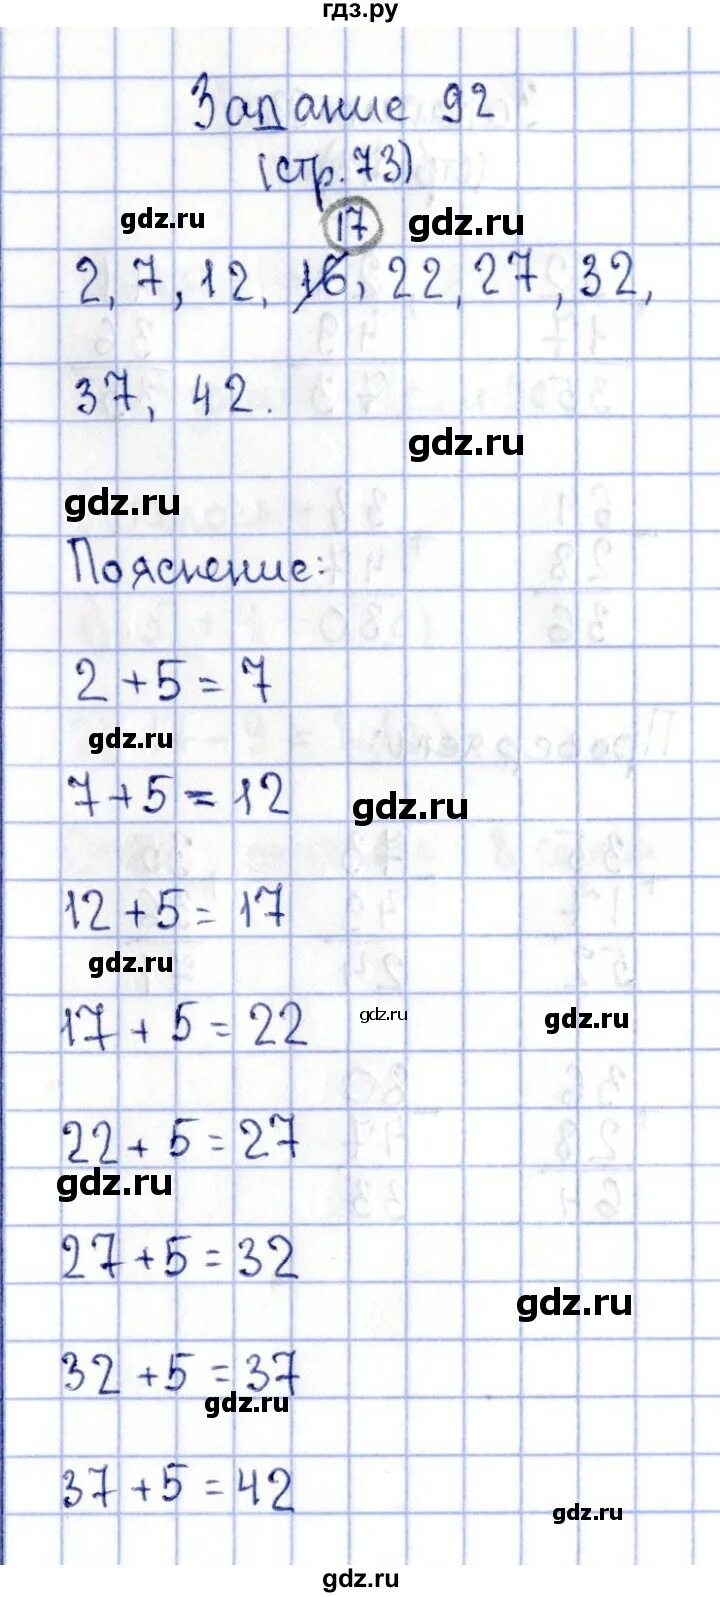 гдз.ру
Задание 92
(стр. 73)
gdz.ru
17
gdz.ru
2, 7, 12, 16, 22, 27, 32,
37, 42.
gdz.ru
gdz.ru
Пояснение:
2 + 5 = 7
gdz.ru
7 + 5 = 12
gdz.ru
12 + 5 = 17
gdz.ru
17 + 5 = 22
gdz.ru
gdz.ru
22 + 5 = 27
gdz.ru
27 + 5 = 32
gdz.ru
32 + 5 = 37
gdz.ru
37 + 5 = 42
gdz.ru
gdz.ru